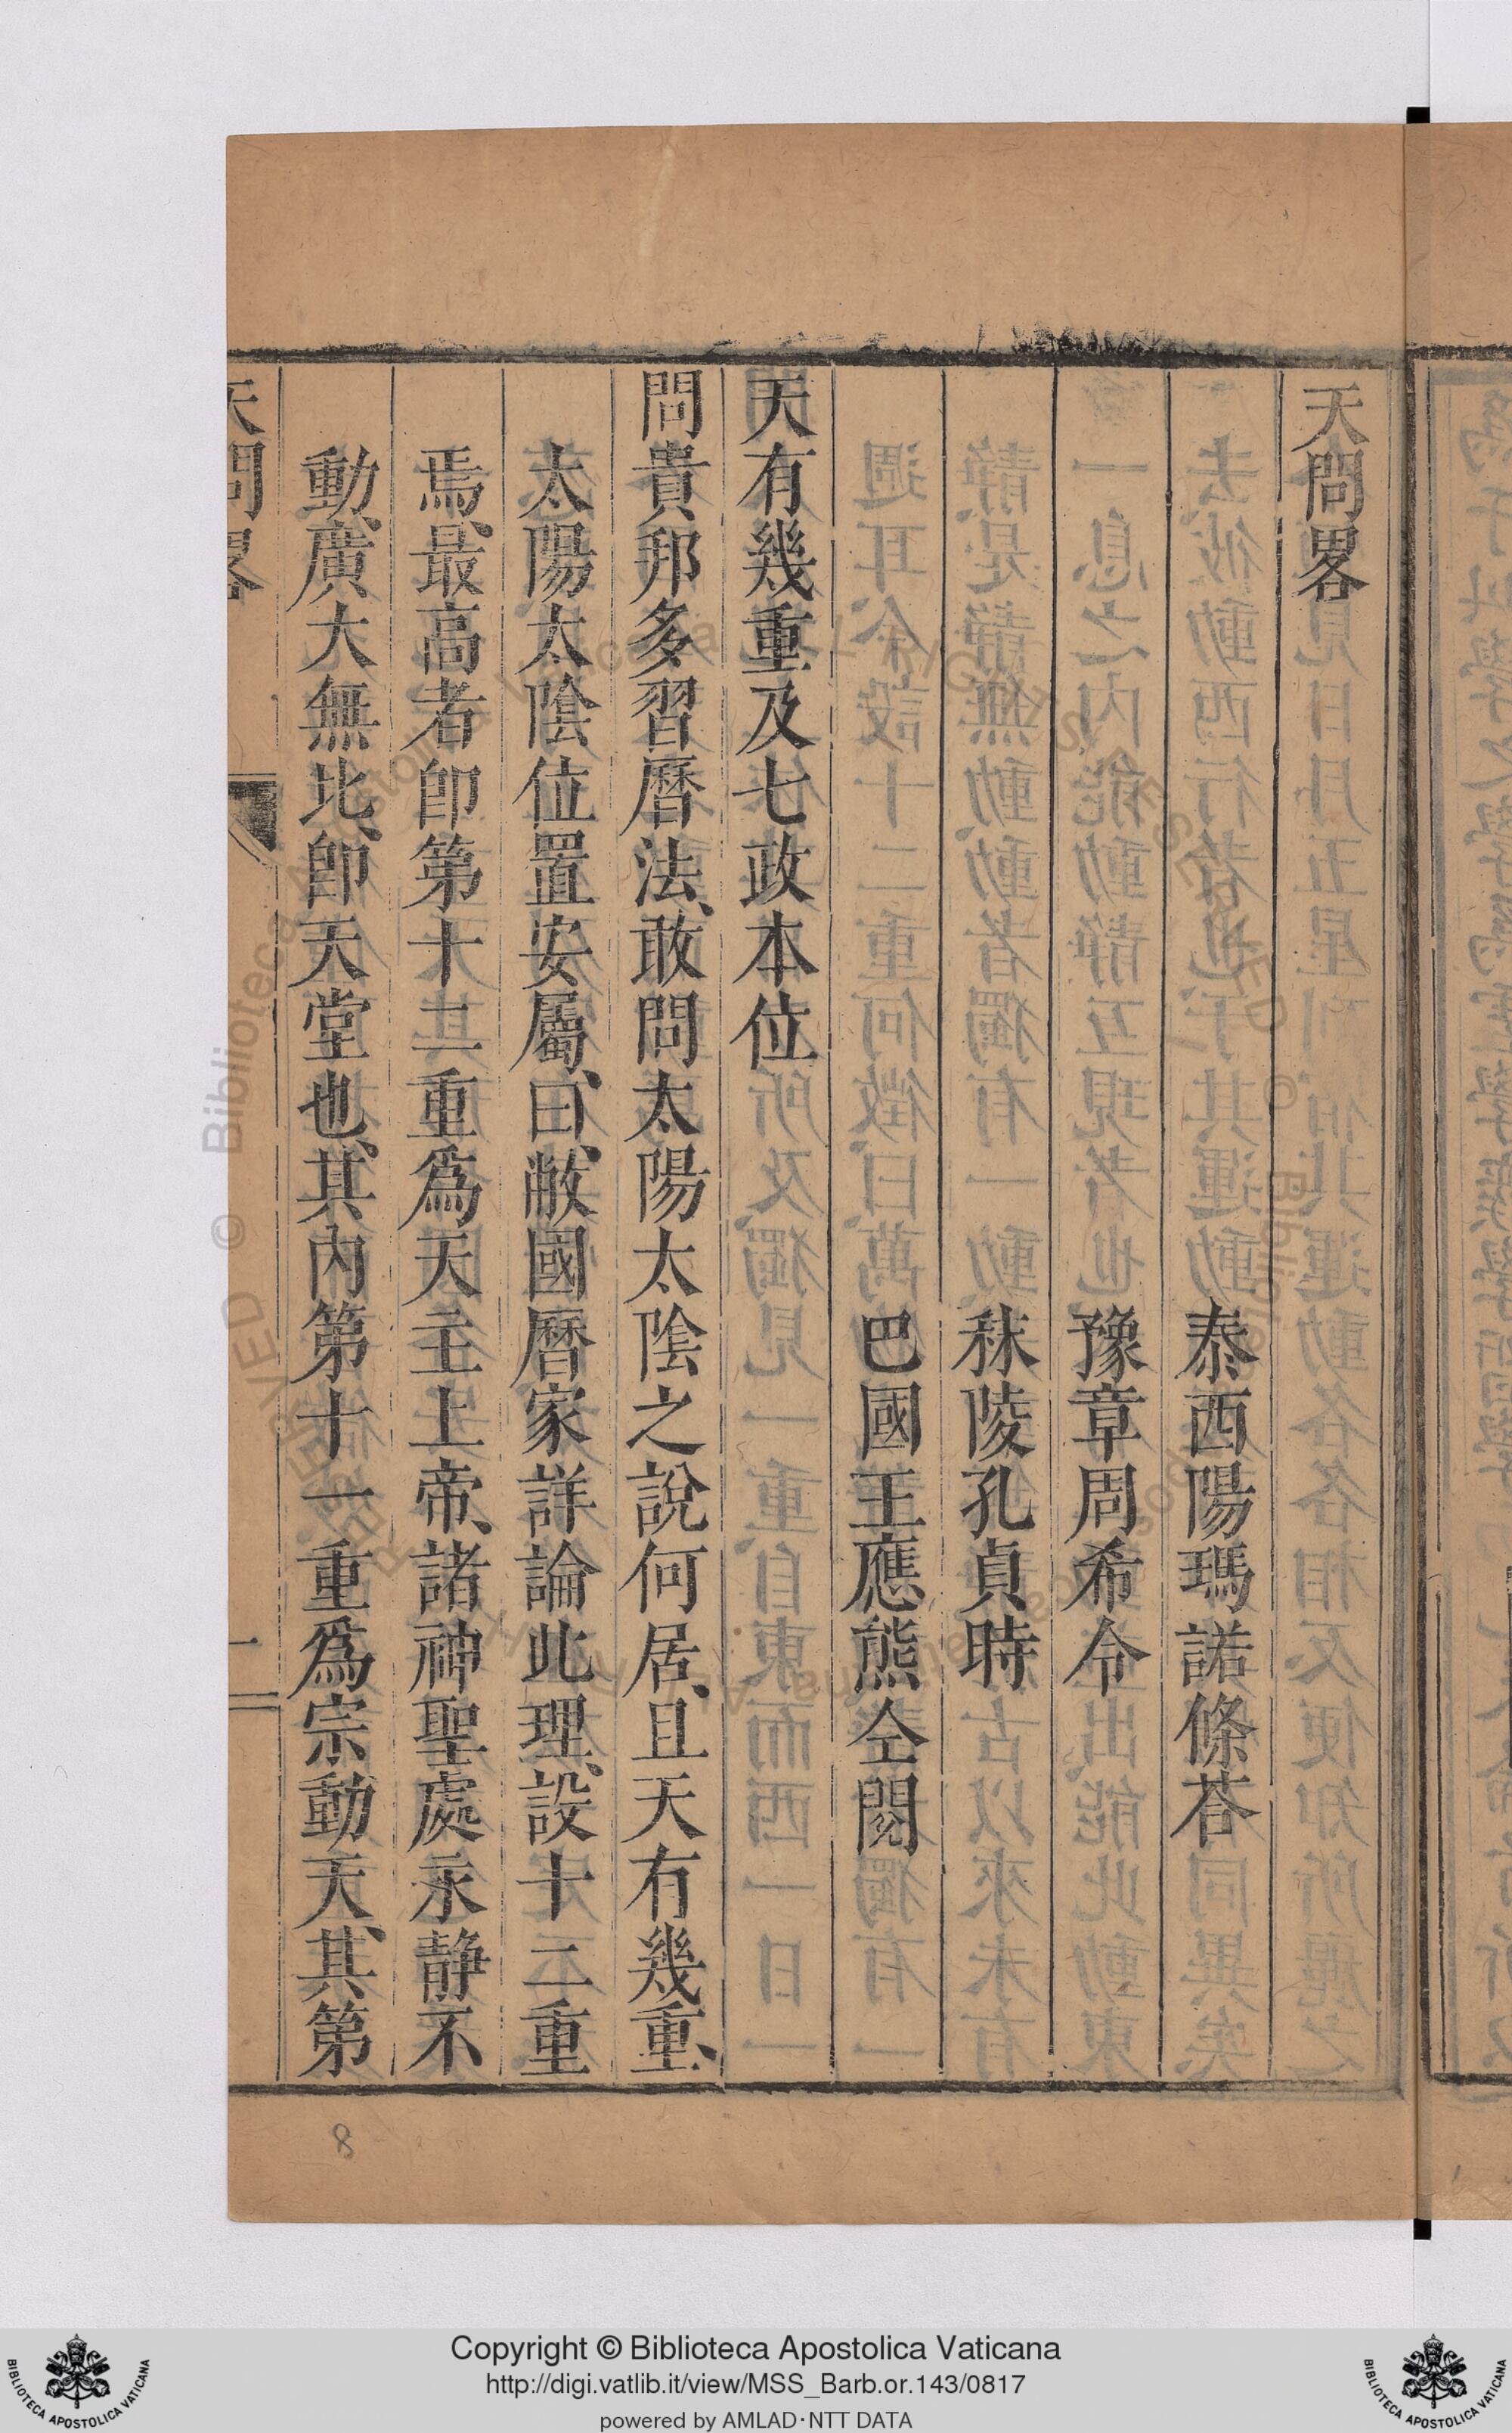 天問畧
泰西陽瑪諾條荅
豫章周希令
秣陵孔貞時
巴國王應熊仝閱
天有幾重及七政本位
問貴邦多習曆法、敢問太陽太陰之說何居、且天有幾重、
太陽太陰位置安屬、曰、敝國曆家詳論此理、設十二重
焉、最高者卽第十二重爲天主上帝、諸神聖處永靜不
動、廣大無比、卽天堂也、其內第十一重爲宗動天、其第
天問畧
一
8
Copyright © Biblioteca Apostolica Vaticana
http://digi.vatlib.it/view/MSS_Barb.or.143/0817
powered by AMLAD·NTT DATA
BIBLIOTECA APOSTOLICA VATICANA
BIBLIOTECA APOSTOLICA VATICANA